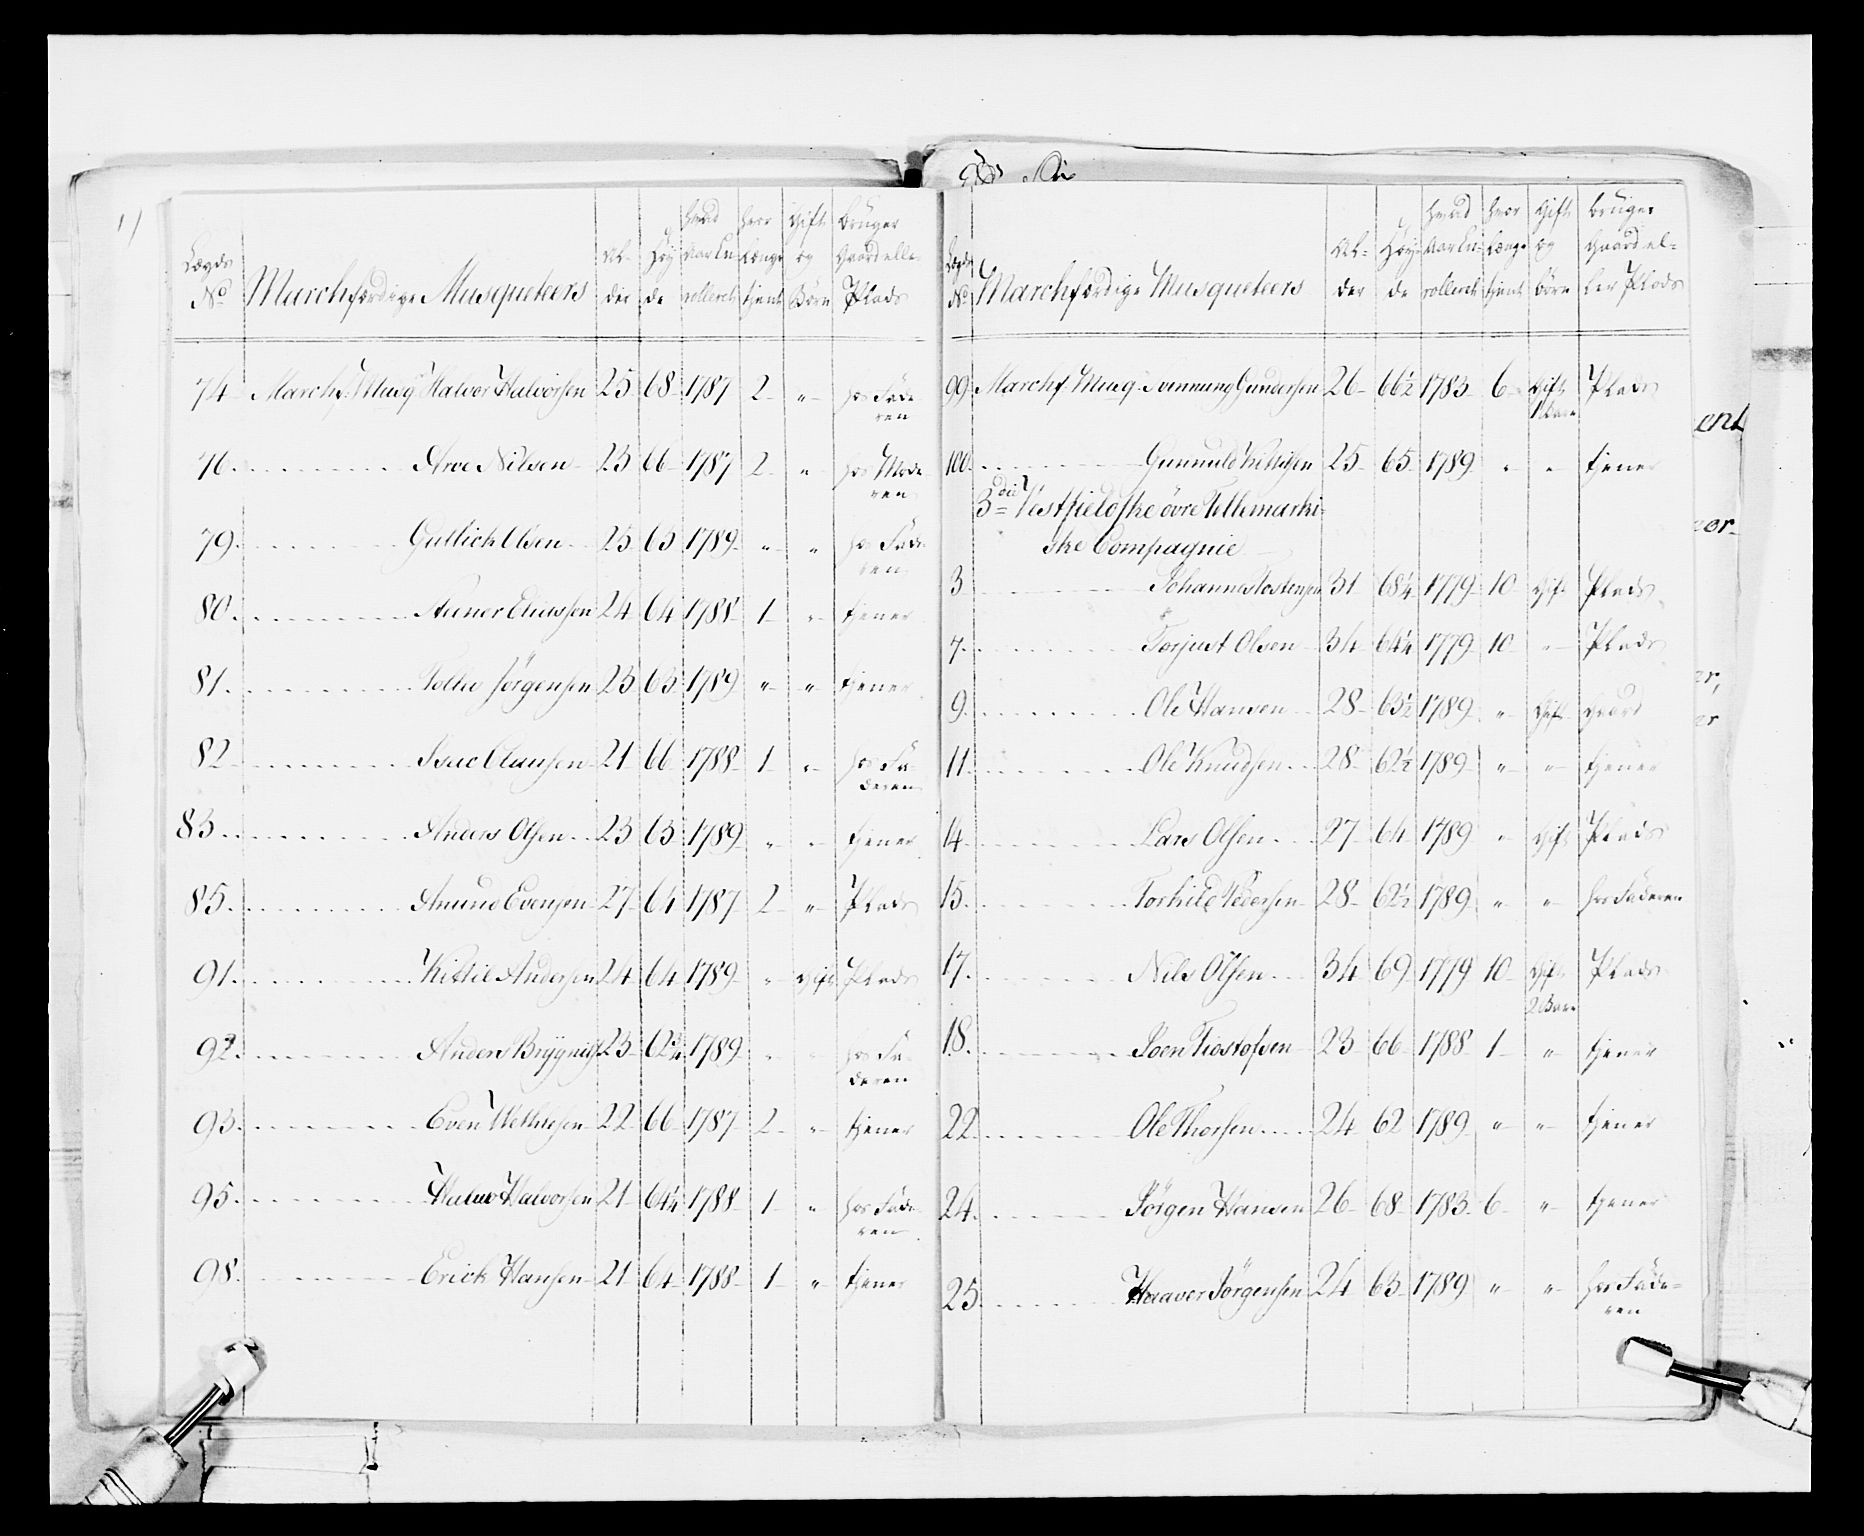 Lægds No Marchfærdige Musqueteers Al- der Høy de hvad Aar En- rolleret hvor Længe tjent Gift og Børn Bruger Gaard eller Plads
74 Marchf. Musq. Halvor Halvorsen 25 68 1787 2 " hos Fade
ren
76. Arve Nilsen 23 66 1787 2 " hos Mode
ren
79. Gullich Olsen 25 63 1789 " " hos Fade
ren
80. Steener Eliassen 24 64 1788 1 " tjener
81. Jørgensen 23 63 1789 " " tjener
82 Isac Clausen 21 66 1788 1 " hos Fa-
deren
83. Anders Olsen 23 63 1789 " " tjener
85. Amund Evensen 27 64 1787 2 " Plads
91. Kittil Andersen 24 64 1789 " Gift Plads
92. Anders 23 62¾ 1789 " " hos Fa-
deren
93. Even 22 66 1787 2 " tjener
95. Halvor Halvorsen 21 64¼ 1788 1 " hos Fade-
ren
98. Erick Hansen 21 64 1788 1 " tjener
Lægds No Marchfærdige Musqueteers Al- der Høy- de hvad Aar En- rolleret hvor Længe tjent Gift og Børn Bruger Gaard el- ler Plads
99 Marchf. Musq. Svennung Gundersen 26 66½ 1783 6 Gift Plads
1 Barn
100. Gunnuld Kittilsen 25 65 1789 " " tjener
3die Vestfieldske övre Tellemarki-
ske Compagnie
3 Johannes Tostensen 31 68¼ 1779 10 Gift Plads
7. Torjust Olsen 34 64¼ 1779 10 " Plads
9. Ole Hansen 28 63½ 1789 " Gift Gaard
11. Ole Knudsen 28 62½ 1789 " " tjener
14. Lars Olsen 27 64 1789 " Gift Plads
15. Torkild Pedersen 28 62½ 1789 " " hos Faderen
17. Nils Olsen 34 69 1779 10 Gift Plads
2 Børn
18. Joen Tiostolsen 23 66 1788 1 " tjener
22. Ole Thorsen 24 62 1789 " " tjener
24. Jörgen Hansen 26 68 1783 6 " tjener
25. Haaver Jörgensen 24 63 1789 " " hos Fade-
ren